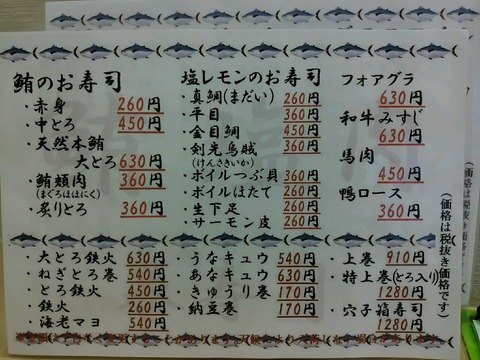 鮪のお寿司
・赤身 260円
・中とろ 450円
・天然本鮪
大とろ 630円
・鮪頬肉 360円
(まぐろほほにく)
・炙りとろ 360円
塩レモンのお寿司
・真鯛(まだい) 260円
・平目 360円
・金目鯛 450円
・剣先烏賊 360円
(けんさきいか)
・ボイルつぶ貝 360円
・ボイルほたて 260円
・生下足 260円
・サーモン皮 260円
フォアグラ
630円
和牛みすじ
630円
馬肉
450円
鴨ロース
360円
(価格は税抜き価格です)
・大とろ鉄火 630円
・ねぎとろ巻 540円
・とろ鉄火 450円
・鉄火 260円
・海老マヨ 540円
・うなキュウ 540円
・あなキュウ 630円
・きゅうり巻 170円
・納豆巻 170円
・上巻 910円
・特上巻(とろ入り)
1280円
・穴子箱寿司
1280円